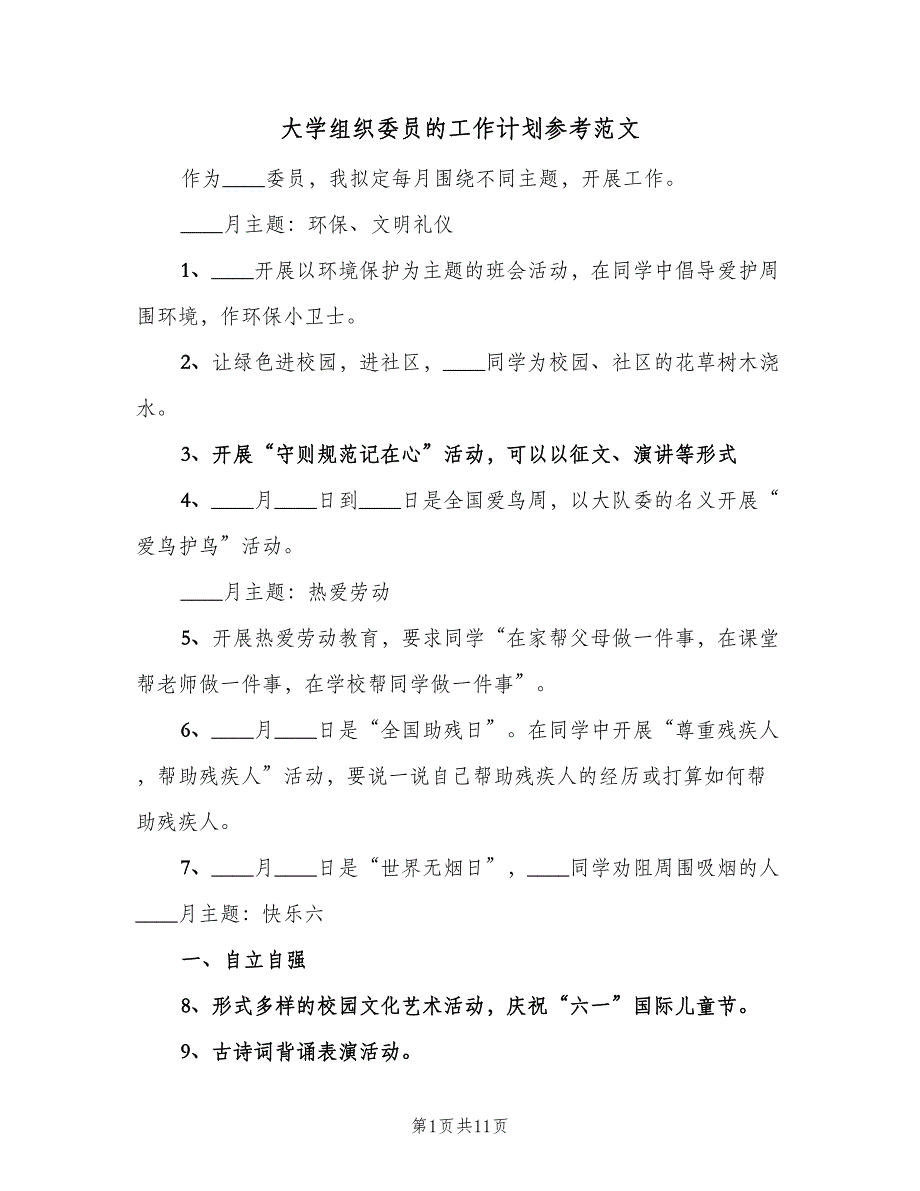 大学组织委员的工作计划参考范文
作为____委员，我拟定每月围绕不同主题，开展工作。
____月主题：环保、文明礼仪
1、____开展以环境保护为主题的班会活动，在同学中倡导爱护周
围环境，作环保小卫士。
2、让绿色进校园，进社区，____同学为校园、社区的花草树木浇
水。
3、开展“守则规范记在心”活动，可以以征文、演讲等形式
4、____月____日到____日是全国爱鸟周，以大队委的名义开展“
爱鸟护鸟”活动。
____月主题：热爱劳动
5、开展热爱劳动教育，要求同学“在家帮父母做一件事，在课堂
帮老师做一件事，在学校帮同学做一件事”。
6、____月____日是“全国助残日”。在同学中开展“尊重残疾人
，帮助残疾人”活动，要说一说自己帮助残疾人的经历或打算如何帮
助残疾人。
7、____月____日是“世界无烟日”，____同学劝阻周围吸烟的人
____月主题：快乐六
一、自立自强
8、形式多样的校园文化艺术活动，庆祝“六一”国际儿童节。
9、古诗词背诵表演活动。
第1页共11页